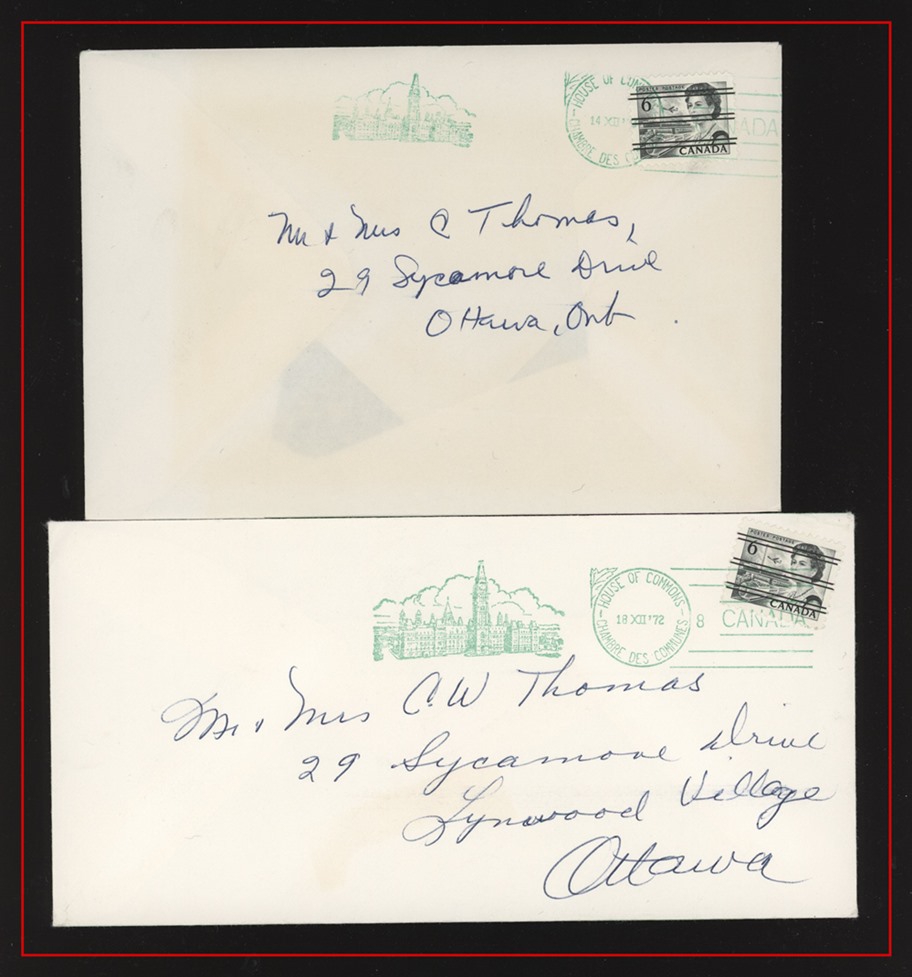 HOUSE OF COM
14 XII '
CHAMBRE DES CO
NADA
POSTES POSTAGE
6
CANADA
Mr & Mrs C Thomas,
29 Sycamore Drive
Ottawa, Ont.
HOUSE OF COMMONS
18 XII '72
CHAMBRE DES COMMUNES
8 CANADA
POSTES POSTAGE
6
CANADA
Mr & Mrs C.W Thomas
29 Sycamore Drive
Lynwood Village
Ottawa